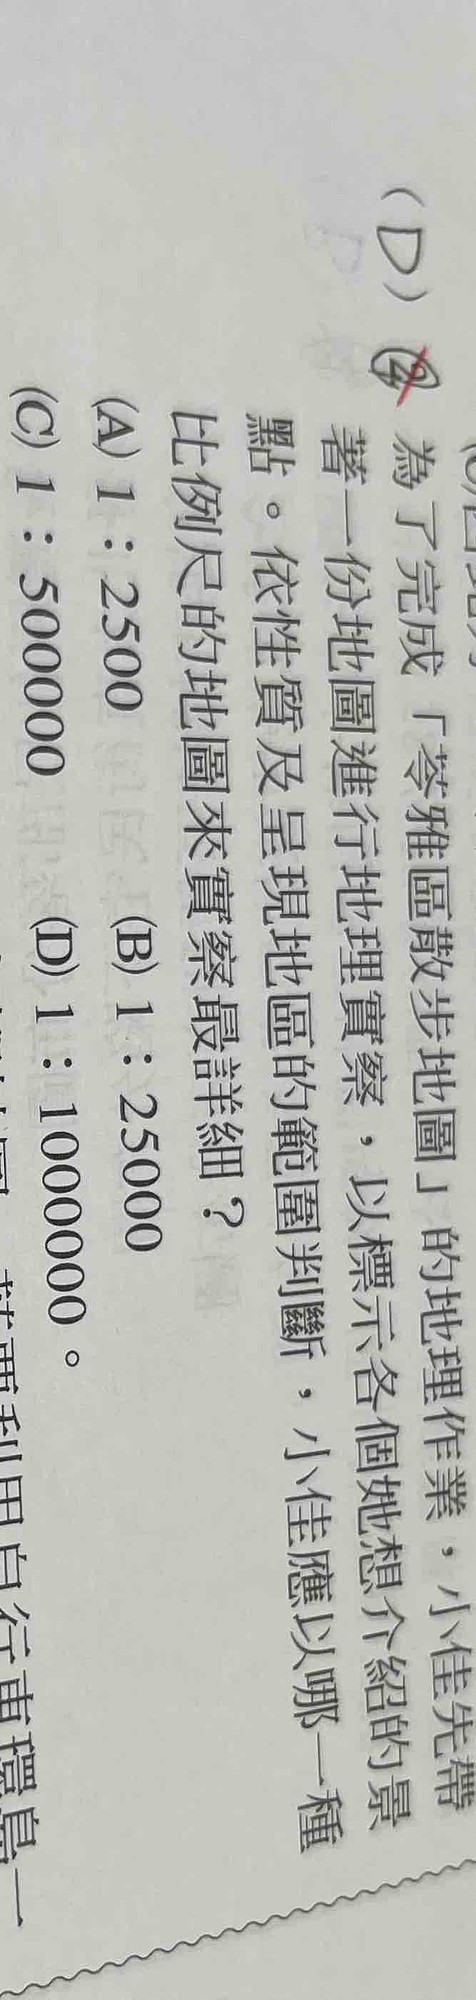 (D) 2. 為了完成「苓雅區散步地圖」的地理作業，小佳先帶
著一份地圖進行地理實察，以標示各個她想介紹的景
點。依性質及呈現地區的範圍判斷，小佳應以哪一種
比例尺的地圖來實察最詳細？
(A) 1：2500 (B) 1：25000
(C) 1：500000 (D) 1：1000000。